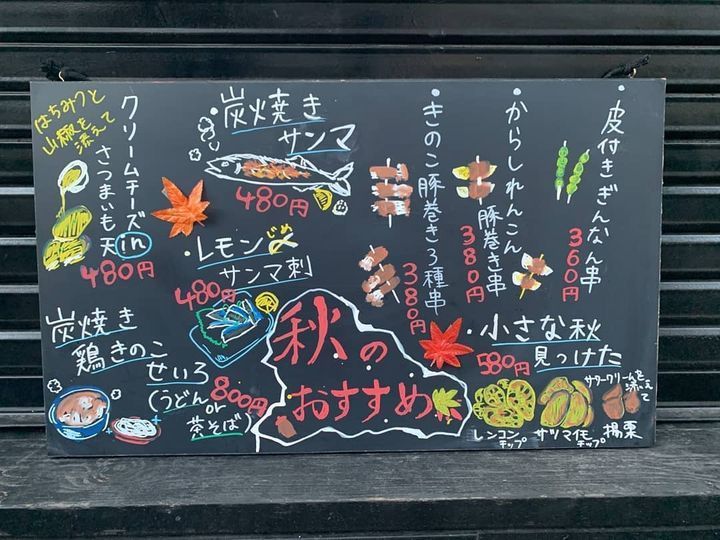 ・皮付きぎんなん串
360円
・からしれんこん
豚巻き串
380円
・きのこ豚巻き3種串
380円
・炭焼き
サンマ
480円
・レモン〆
じめ
サンマ刺
480円
クリームチーズin
さつまいも天
はちみつと
山椒を
添えて
480円
炭焼き
鶏きのこ
せいろ
(うどん
or
茶そば)
800円
秋の
おすすめ
・小さな秋
見つけた
580円
レンコン
チップ
サツマイモ
チップ
サワークリームを
添えて
揚栗